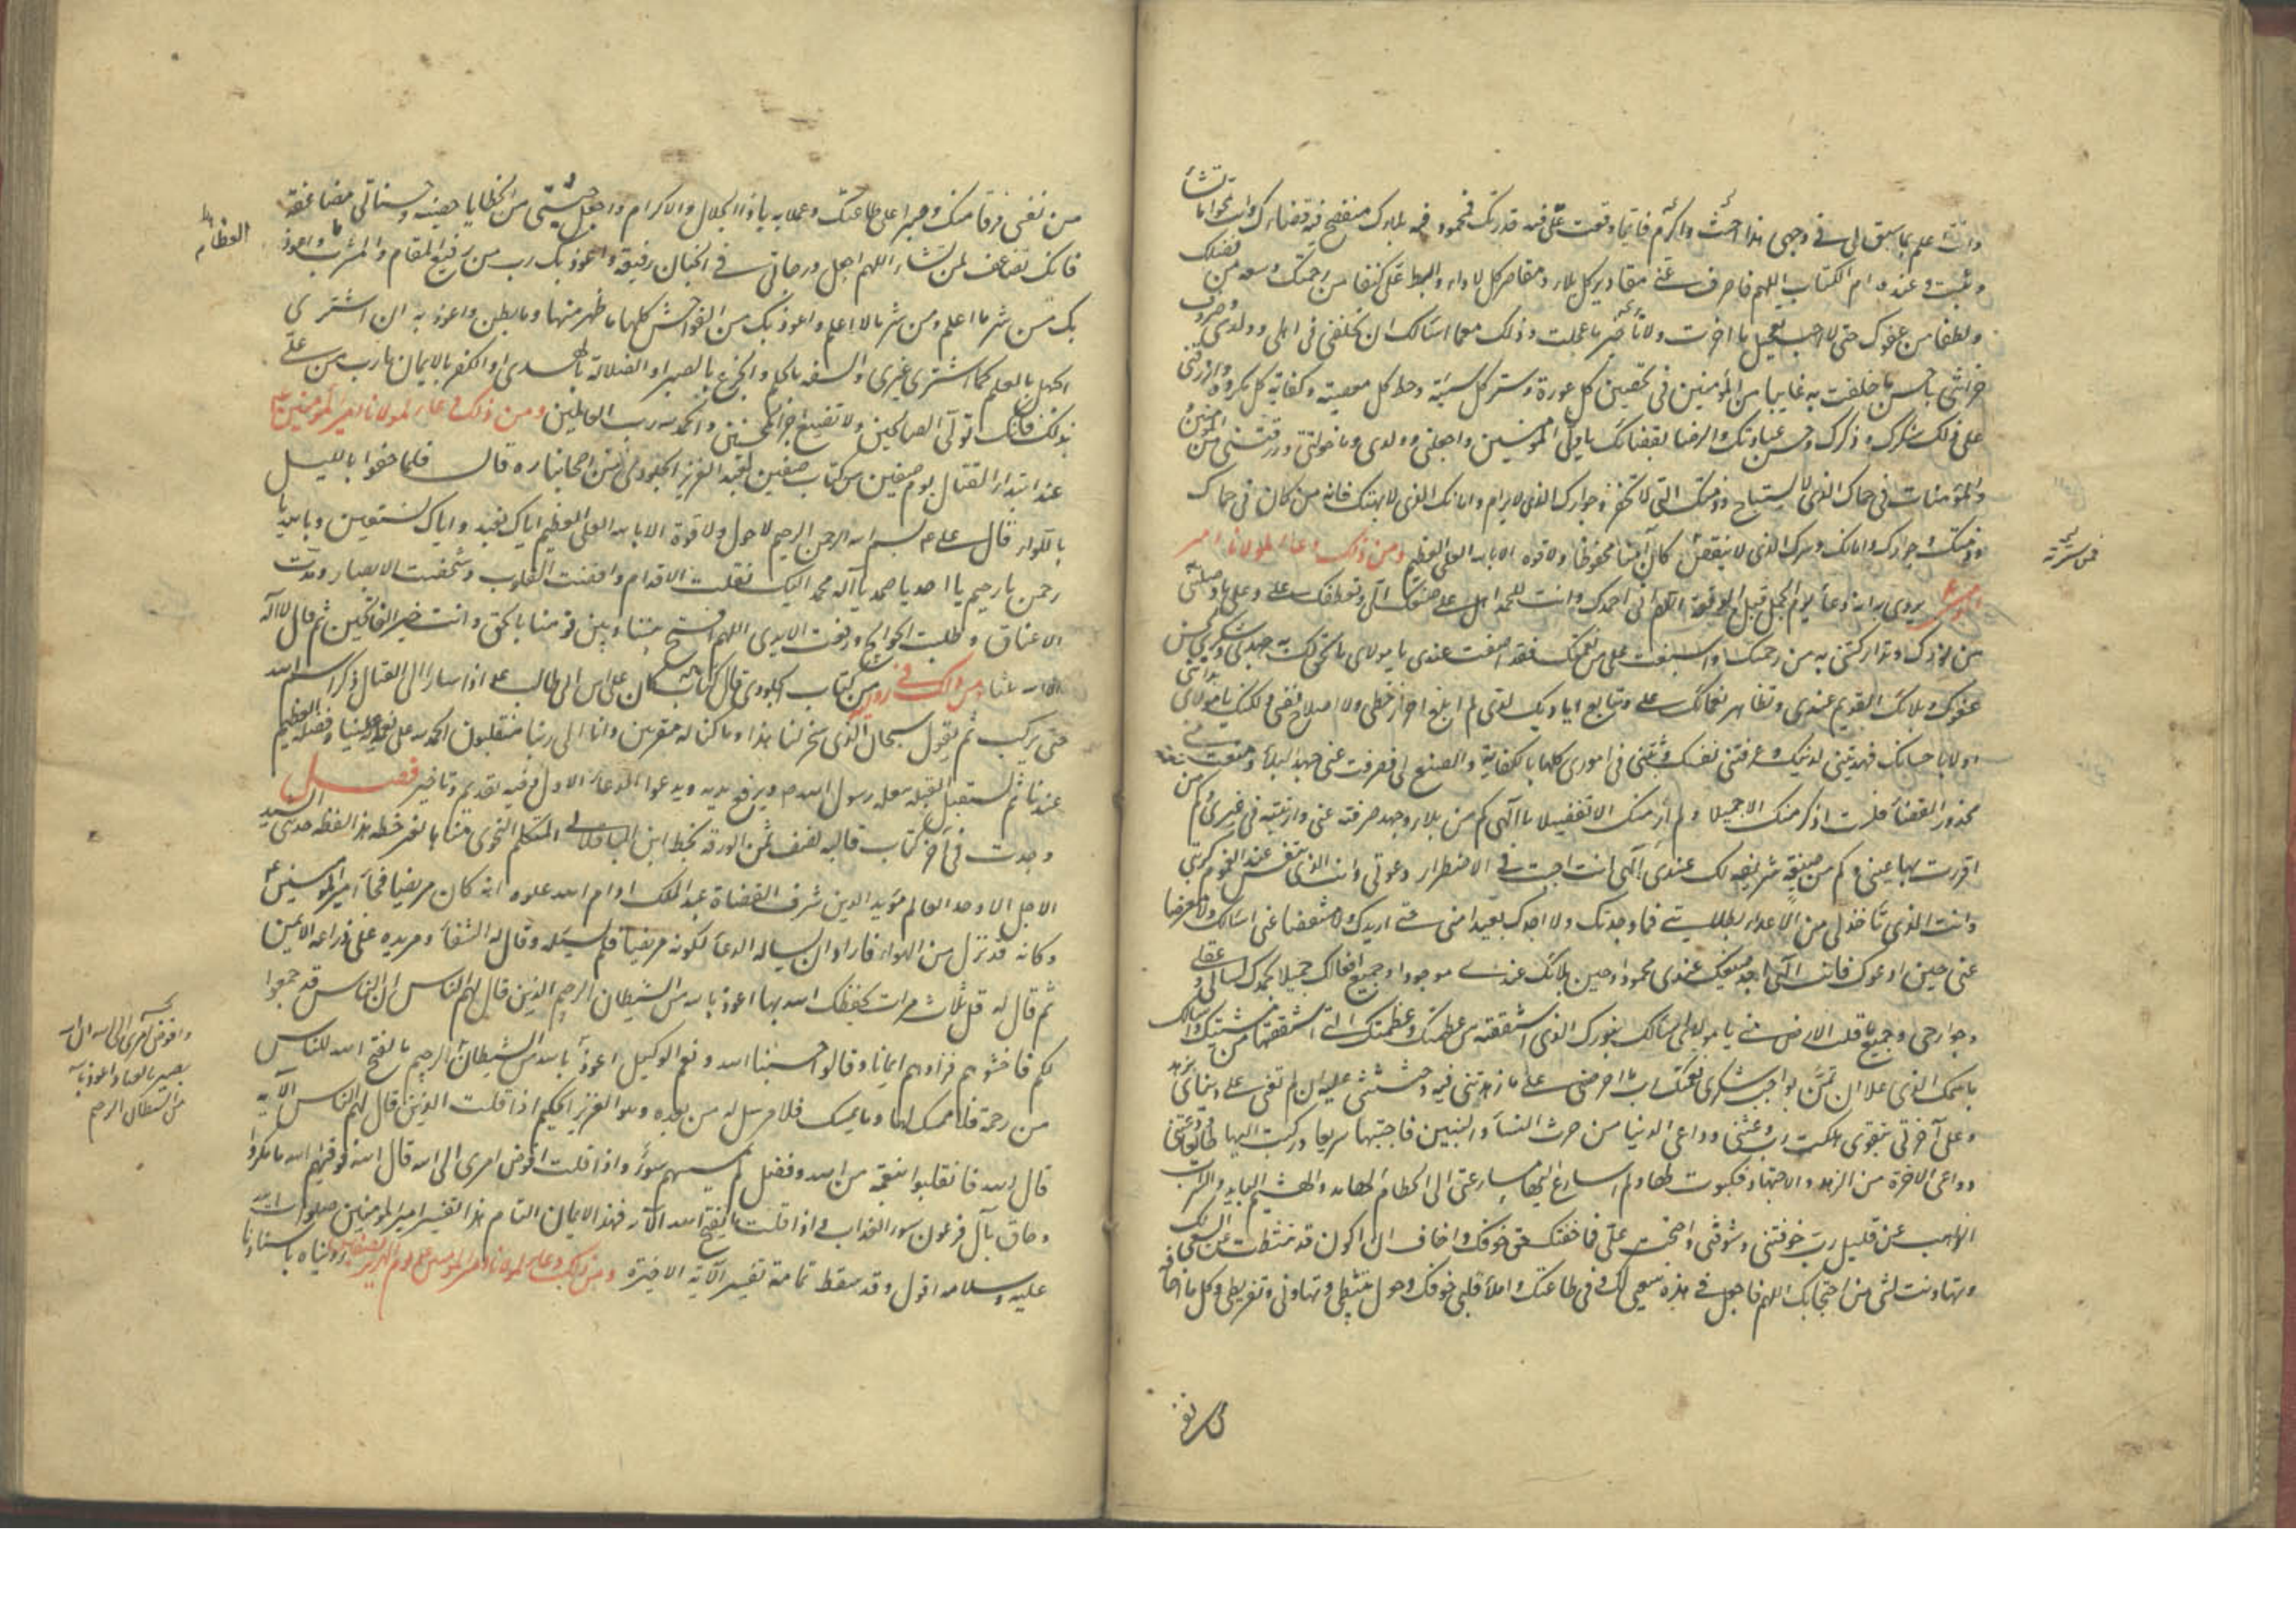 وانت اعلم بما سبق لى فى وجهى هذا احببت واكره فايما وقعت علىّ فيه قدرتك فمحمود فيه بلاؤك متضح فيه قضاؤك وانت تمحو ما تشأ
وتثبت وعنده ام الكتاب اللهم فاصرف عنى مقادير كل بلاء ومقاصر كل لاواء وابسط علىّ كنفا من رحمتك وسعة من فضلك
ولطفا من عفوك حتى لا احب تعجيل ما اخرت ولا تأخير ما عجلت وذلك مع ما اسالك ان تخلفنى فى اهلى وولدى وصروف
حزانتى باحسن ما خلفت به غايبا من المؤمنين فى تحصين كل عورة وستر كل سيئة وحط كل معصية وكفاية كل مكروه وارزقنى
على ذلك شكرك وذكرك وحسن عبادتك والرضا بقضائك يا ولى المؤمنين واجعلنى وولدى وما خولتنى ورزقتنى من المؤمنين
والمؤمنات فى حماك الذى لا يستباح وذمتك التى لا تخفر وجوارك الذى لا يرام وامانك الذى لا ينقض وسترك الذى لا يهتك فانه من كان فى حماك
وذمتك وجوارك وامانك وسترك كان آمنا محفوظا ولا قوة الا بالله العلى العظيم ومن ذلك دعا لمولانا امير
يروى انه دعا يوم الجمل قبل الوقيعة اللهم انى احمدك وانت للحمد اهل على حسن صنعك الىّ وتعطفك علىّ وعلى ما وصلتنى
من نورك وتداركتنى به من رحمتك واسبغت علىّ من نعمتك فقد اصطنعت عندى يا مولاى ما يحق لك به جهدى وشكرى لحسن
عفوك وبلائك القديم عندى وتظاهر نعمائك علىّ وتتابع اياديك لدىّ لم ابلغ احراز حظى ولا اصلاح نفسى ولكنك يا مولاى بدأتنى
اولا باحسانك فهديتنى لدينك وعرفتنى نفسك وثبتنى فى امورى كلها بالكفاية والصنع لى فصرفت عنى جهد البلأ ومنعت منى
محذور القضأ فلست اذكر منك الا جميلا ولم ار منك الا تفضيلا يا الهى كم من بلاء وجهد صرفته عنى واريتنيه فى غيرى وكم من
اقررت بها عينى وكم من صنيعة شريفة لك عندى الهى انت الذى تجيب فى الاضطرار دعوتى وانت الذى تنفس عند الغموم كربتى
وانت الذى تأخذ لى من الاعداء بظلامتى فما وجدتك ولا اجدك بعيدا منى حين اريدك ولا منقبضا عنى حين اسالك ولا معرضا
عنى حين ادعوك فانت الهى اجد صنيعك عندى محمودا وحسن بلائك عندى موجودا وجميع افعالك جميلا يحمدك لسانى وعقلى
وجوارحى وجميع ما اقلت الارض منى يا مولاى اسالك بنورك الذى اشتققته من عظمتك وعظمتك التى اشتققتها من مشيتك واسالك
باسمك الذى علا ان تمن علىّ بواجب شكرى نعمتك رب ما احرصنى على ما زهدتنى فيه وحثثتنى عليه ان لم تعنى على دنياى بزهد
وعلى آخرتى بتقوى هلكت رب دعتنى دواعى الدنيا من حرث النسآ والبنين فاجبتها سريعا وركنت اليها طائعا ودعتنى
دواعى الاخرة من الزهد والاجتهاد فكبوت لها ولم اسارع اليها مسارعتى الى الحطام الهامد والهشيم البايد والسراب
الذاهب عن قليل رب خوفتنى وشوقتنى واحتججت علىّ فما خفتك حق خوفك واخاف ان اكون قد تثبطت عن السعى لك
وتهاونت بشى من احتجابك اللهم فاجعل فى هذه سعيى لك وفى طاعتك واملأ قلبى خوفك وحول تثبيطى وتهاونى وتفريطى وكل ما اخافه
من نفسى فرقا منك وصبرا على طاعتك وعملا به يا ذا الجلال والاكرام واجعل جنتى من الخطايا حصينة وحسناتى مضاعفة
فانك تضاعف لمن تشاء اللهم اجعل درجاتى فى الجنان رفيعة واعوذ بك رب من رفيع المطعم والمشرب واعوذ
بك من شر ما اعلم ومن شر ما لا اعلم واعوذ بك من الفواحش كلها ما ظهر منها وما بطن واعوذ به ان اشترى
الجهل بالعلم كما اشترى غيرى والسفه بالحلم والجزع بالصبر او الضلالة بالهدى او الكفر بالايمان يا رب من علىّ
بذلك فانك تتولى الصالحين ولا تضيع اجر المحسنين والحمد لله رب العالمين ومن ذلك دعاء لمولانا امير المؤمنين
عند ابتداء القتال يوم صفين من كتاب صفين لعبد العزيز الجلودى من اصحابنا ره قال فلما زحفوا باللوا
قال على ع بسم الله الرحمن الرحيم لا حول ولا قوة الا بالله العلى العظيم اياك نعبد واياك نستعين يا الله يا
رحمن يا رحيم يا احد يا صمد يا اله محمد اليك نقلت الاقدام وافضت القلوب وشخصت الابصار ومدت
الاعناق وطلبت الحوايج ورفعت الايدى اللهم افتح بيننا وبين قومنا بالحق وانت خير الفاتحين ثم قال لا اله
الا الله ثلثا ومن ذلك فى رواية من كتاب الجلودى قال كان على بن ابى طالب ع اذا سار الى القتال ذكر اسم الله
حتى يركب ثم يقول سبحان الذى سخر لنا هذا وما كنا له مقرنين وانا الى ربنا لمنقلبون الحمد لله على نعمه علينا وفضله العظيم
عندنا ثم يستقبل القبلة بغلة رسول الله ص ويرفع يديه ويدعوا الدعاء الاول وفيه تقديم وتاخير فصل
وجدت فى آخر كتاب قالبه نصف ثمن الورقة بخط ابن الباقلانى المتكلم النحوى ما هذا لفظه حدثنى السيد
الاجل الاوحد العالم مؤيد الدين شرف القضاة عبد الملك ادام الله علوه انه كان مريضا فجأ امير المؤمنين ع
وكانه قد نزل من الهواء فاراد ان يساله الدعأ لكونه مريضا فلم يسئله وقال له الشفأ ومر يده على ذراعه الايمن
ثم قال له قل ثلاث مرات يحفظك الله بها اعوذ بالله من الشيطان الرجيم الذين قال لهم الناس ان الناس قد جمعوا
لكم فاخشوهم فزادهم ايمانا وقالوا حسبنا الله ونعم الوكيل اعوذ بالله من الشيطان الرجيم ما يفتح الله للناس
من رحمة فلا ممسك لها وما يمسك فلا مرسل له من بعده وهو العزيز الحكيم اذا قلت الذين قال لهم الناس الآية
قال الله فانقلبوا بنعمة من الله وفضل لم يمسسهم سوء واذا قلت افوض امرى الى الله قال الله فوقيهم الله ما مكروا
وحاق بآل فرعون سوء العذاب واذا قلت ما يفتح الله الآية فهذا الايمان التام هذا تفسير امير المؤمنين صلوات الله
عليه وسلامه اقول وقد سقط تمامة تفسير الآية الاخيرة ومن ذلك دعاء لمولانا امير المؤمنين على يوم الهرير بصفين رويناه باسنادنا
وافوض امرى الى الله ان الله
بصير بالعباد اعوذ بالله
من الشيطان الرجيم